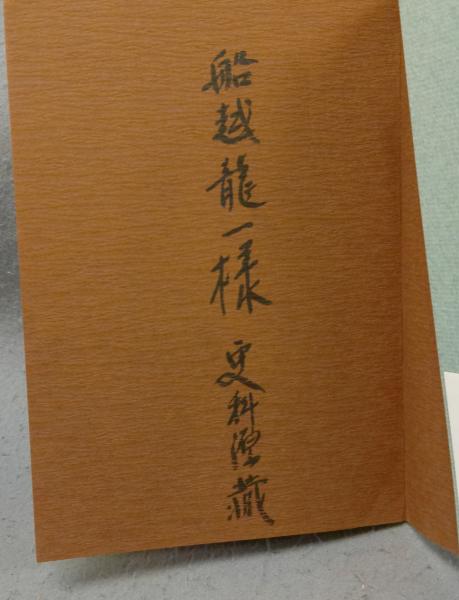 船越龍一様
更科源蔵